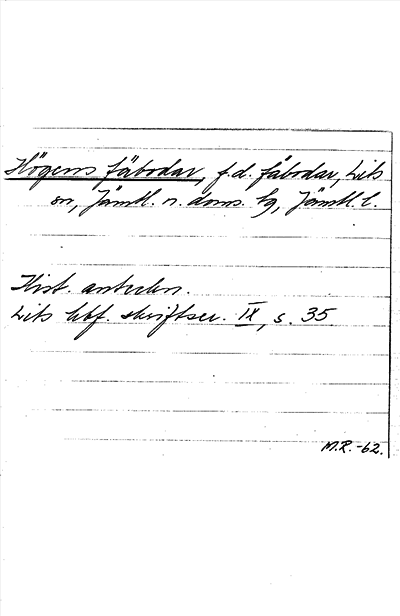 Högens fäbodar, f.d. fäbodar, Lits
sn, Jämtl. n. doms. tg, Jämtl. l.
Hist. anteckn.
Lits hbf. skriftser. IX, s. 35
M.R.-62.